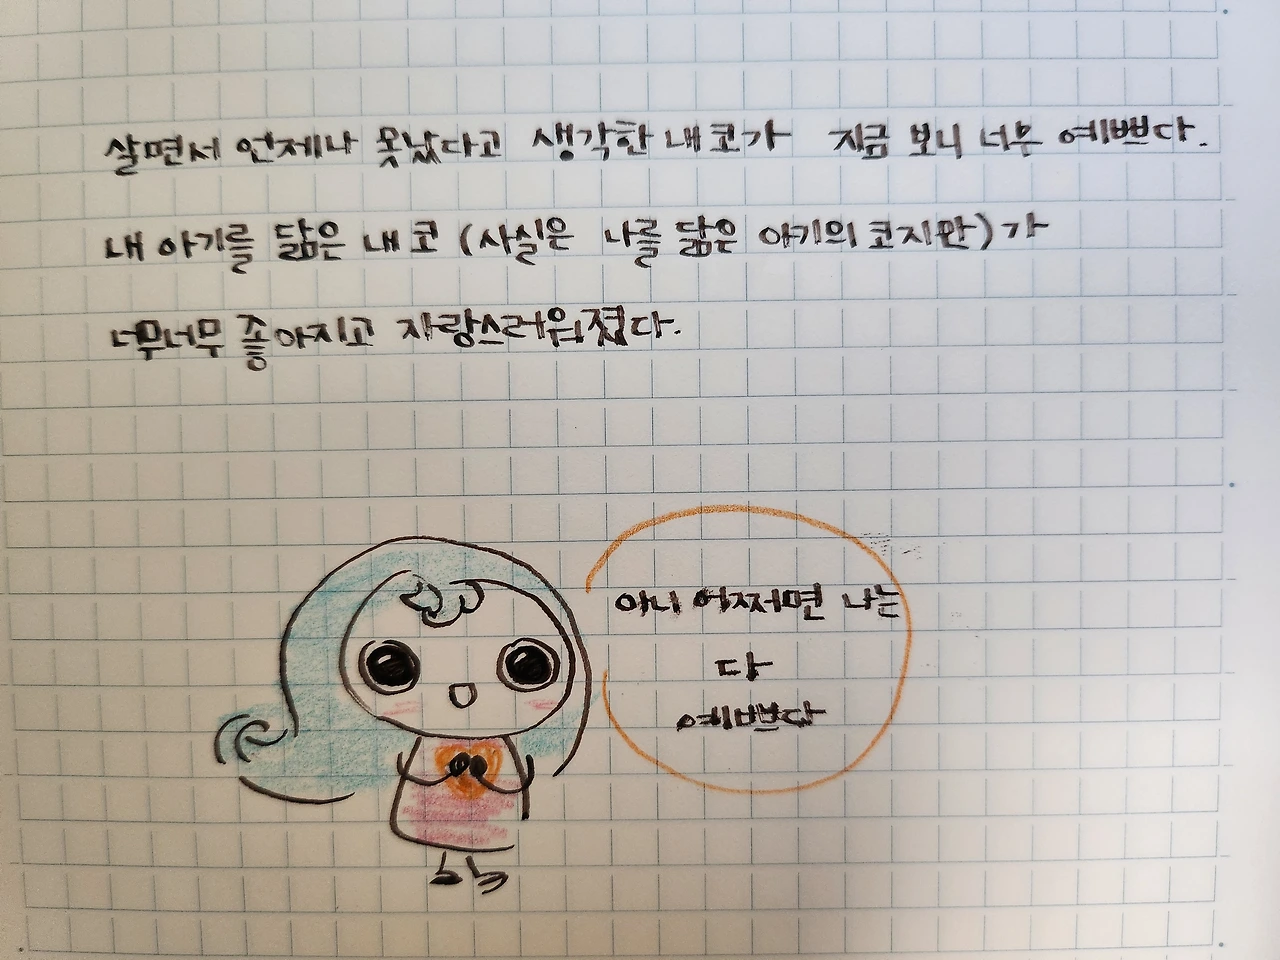 살면서 언제나 못났다고 생각한 내 코가 지금 보니 너무 예쁘다.
내 아기를 닮은 내 코 (사실은 나를 닮은 아기의 코지만)가
너무너무 좋아지고 자랑스러워졌다.
아니 어쩌면 나는
다
예쁘다